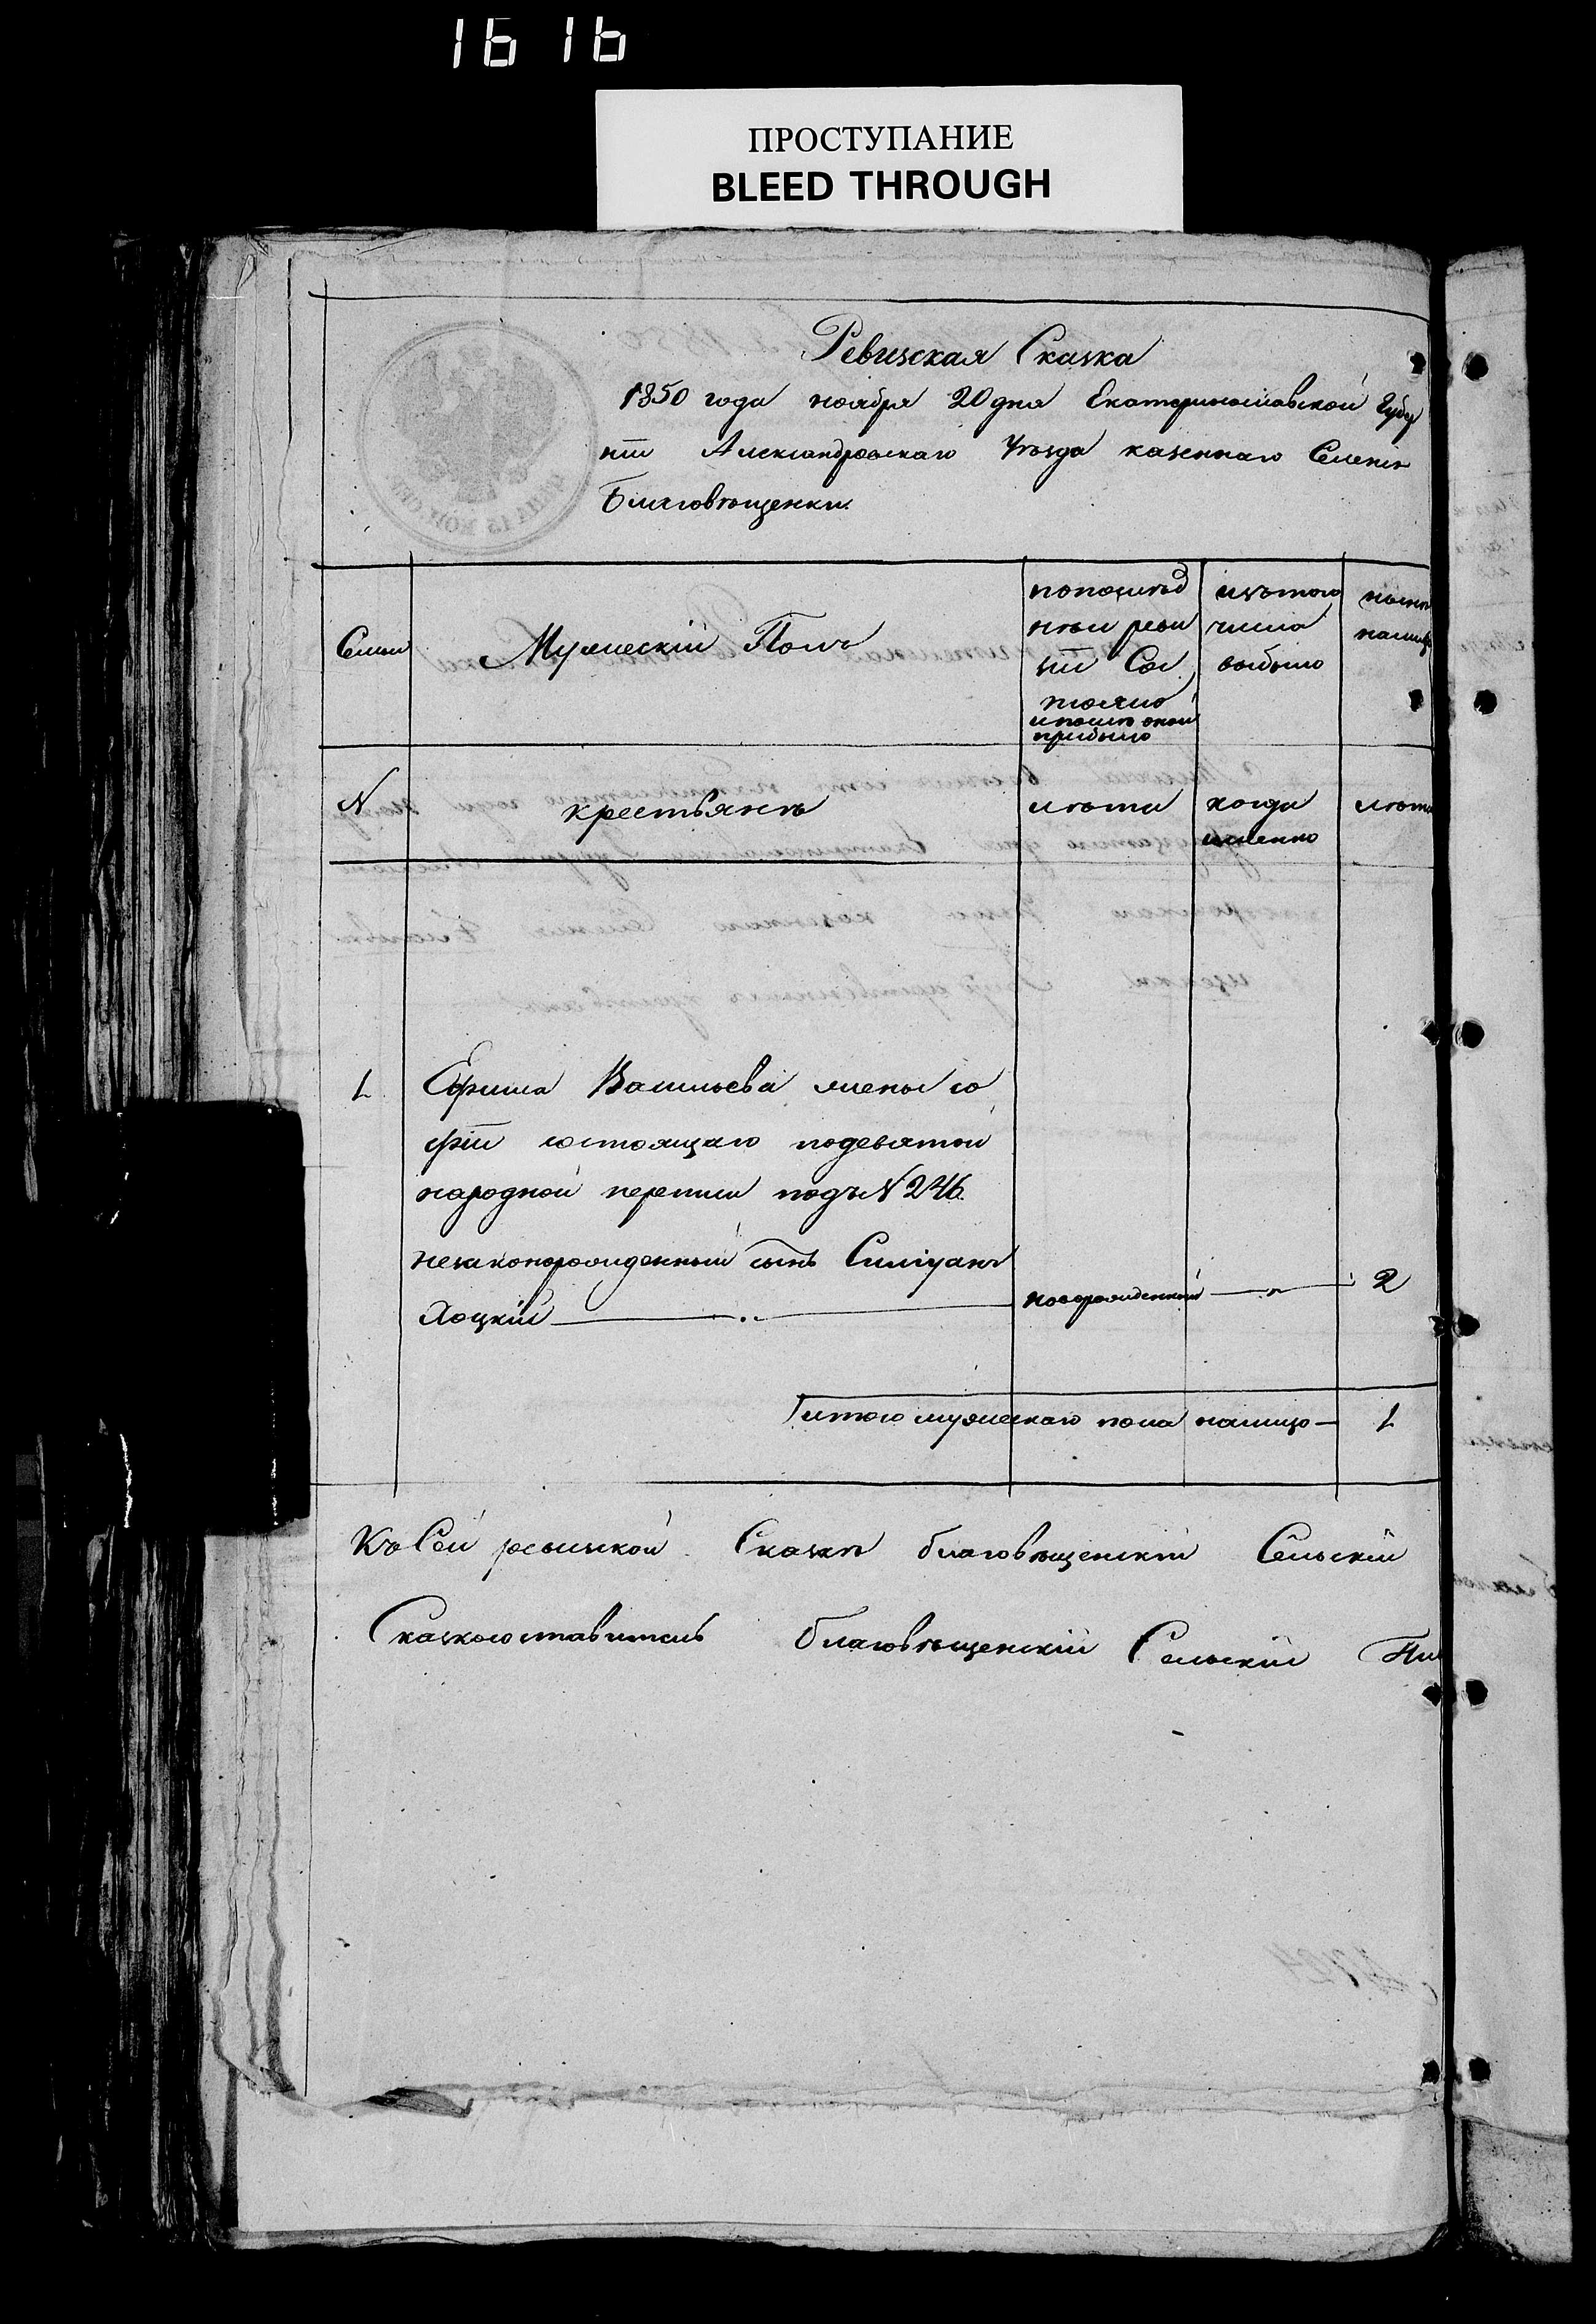 16 16
ПРОСТУПАНИЕ
BLEED THROUGH
Ревизская Сказка
1850 года ноября 20 дня Екатеринославской Губер
нiи Александровскаго Уѣзда казеннаго Селенія
Благовѣщенки
Семьи
Мужескій Полъ
попослѣд
нѣи реви
зiи Сос
тояло
и послѣ оной
прибыло
изътого
числа
выбыло
нынѣ
налицо
N
крестьянъ
лѣта
когда
именно
лѣта
1
Ефима Васильева жены Со
фiи состоящаго подевятой
народной переписи подъ N 246
незаконорожденный сынъ Силуанъ
Хоцкій
новорожденный
2
Итого мужескаго пола налицо
1
Къ Сей ревизской Сказкѣ благовѣщенскій Сельскій
Сказкосоставитель благовѣщенскій Сельскій Пи